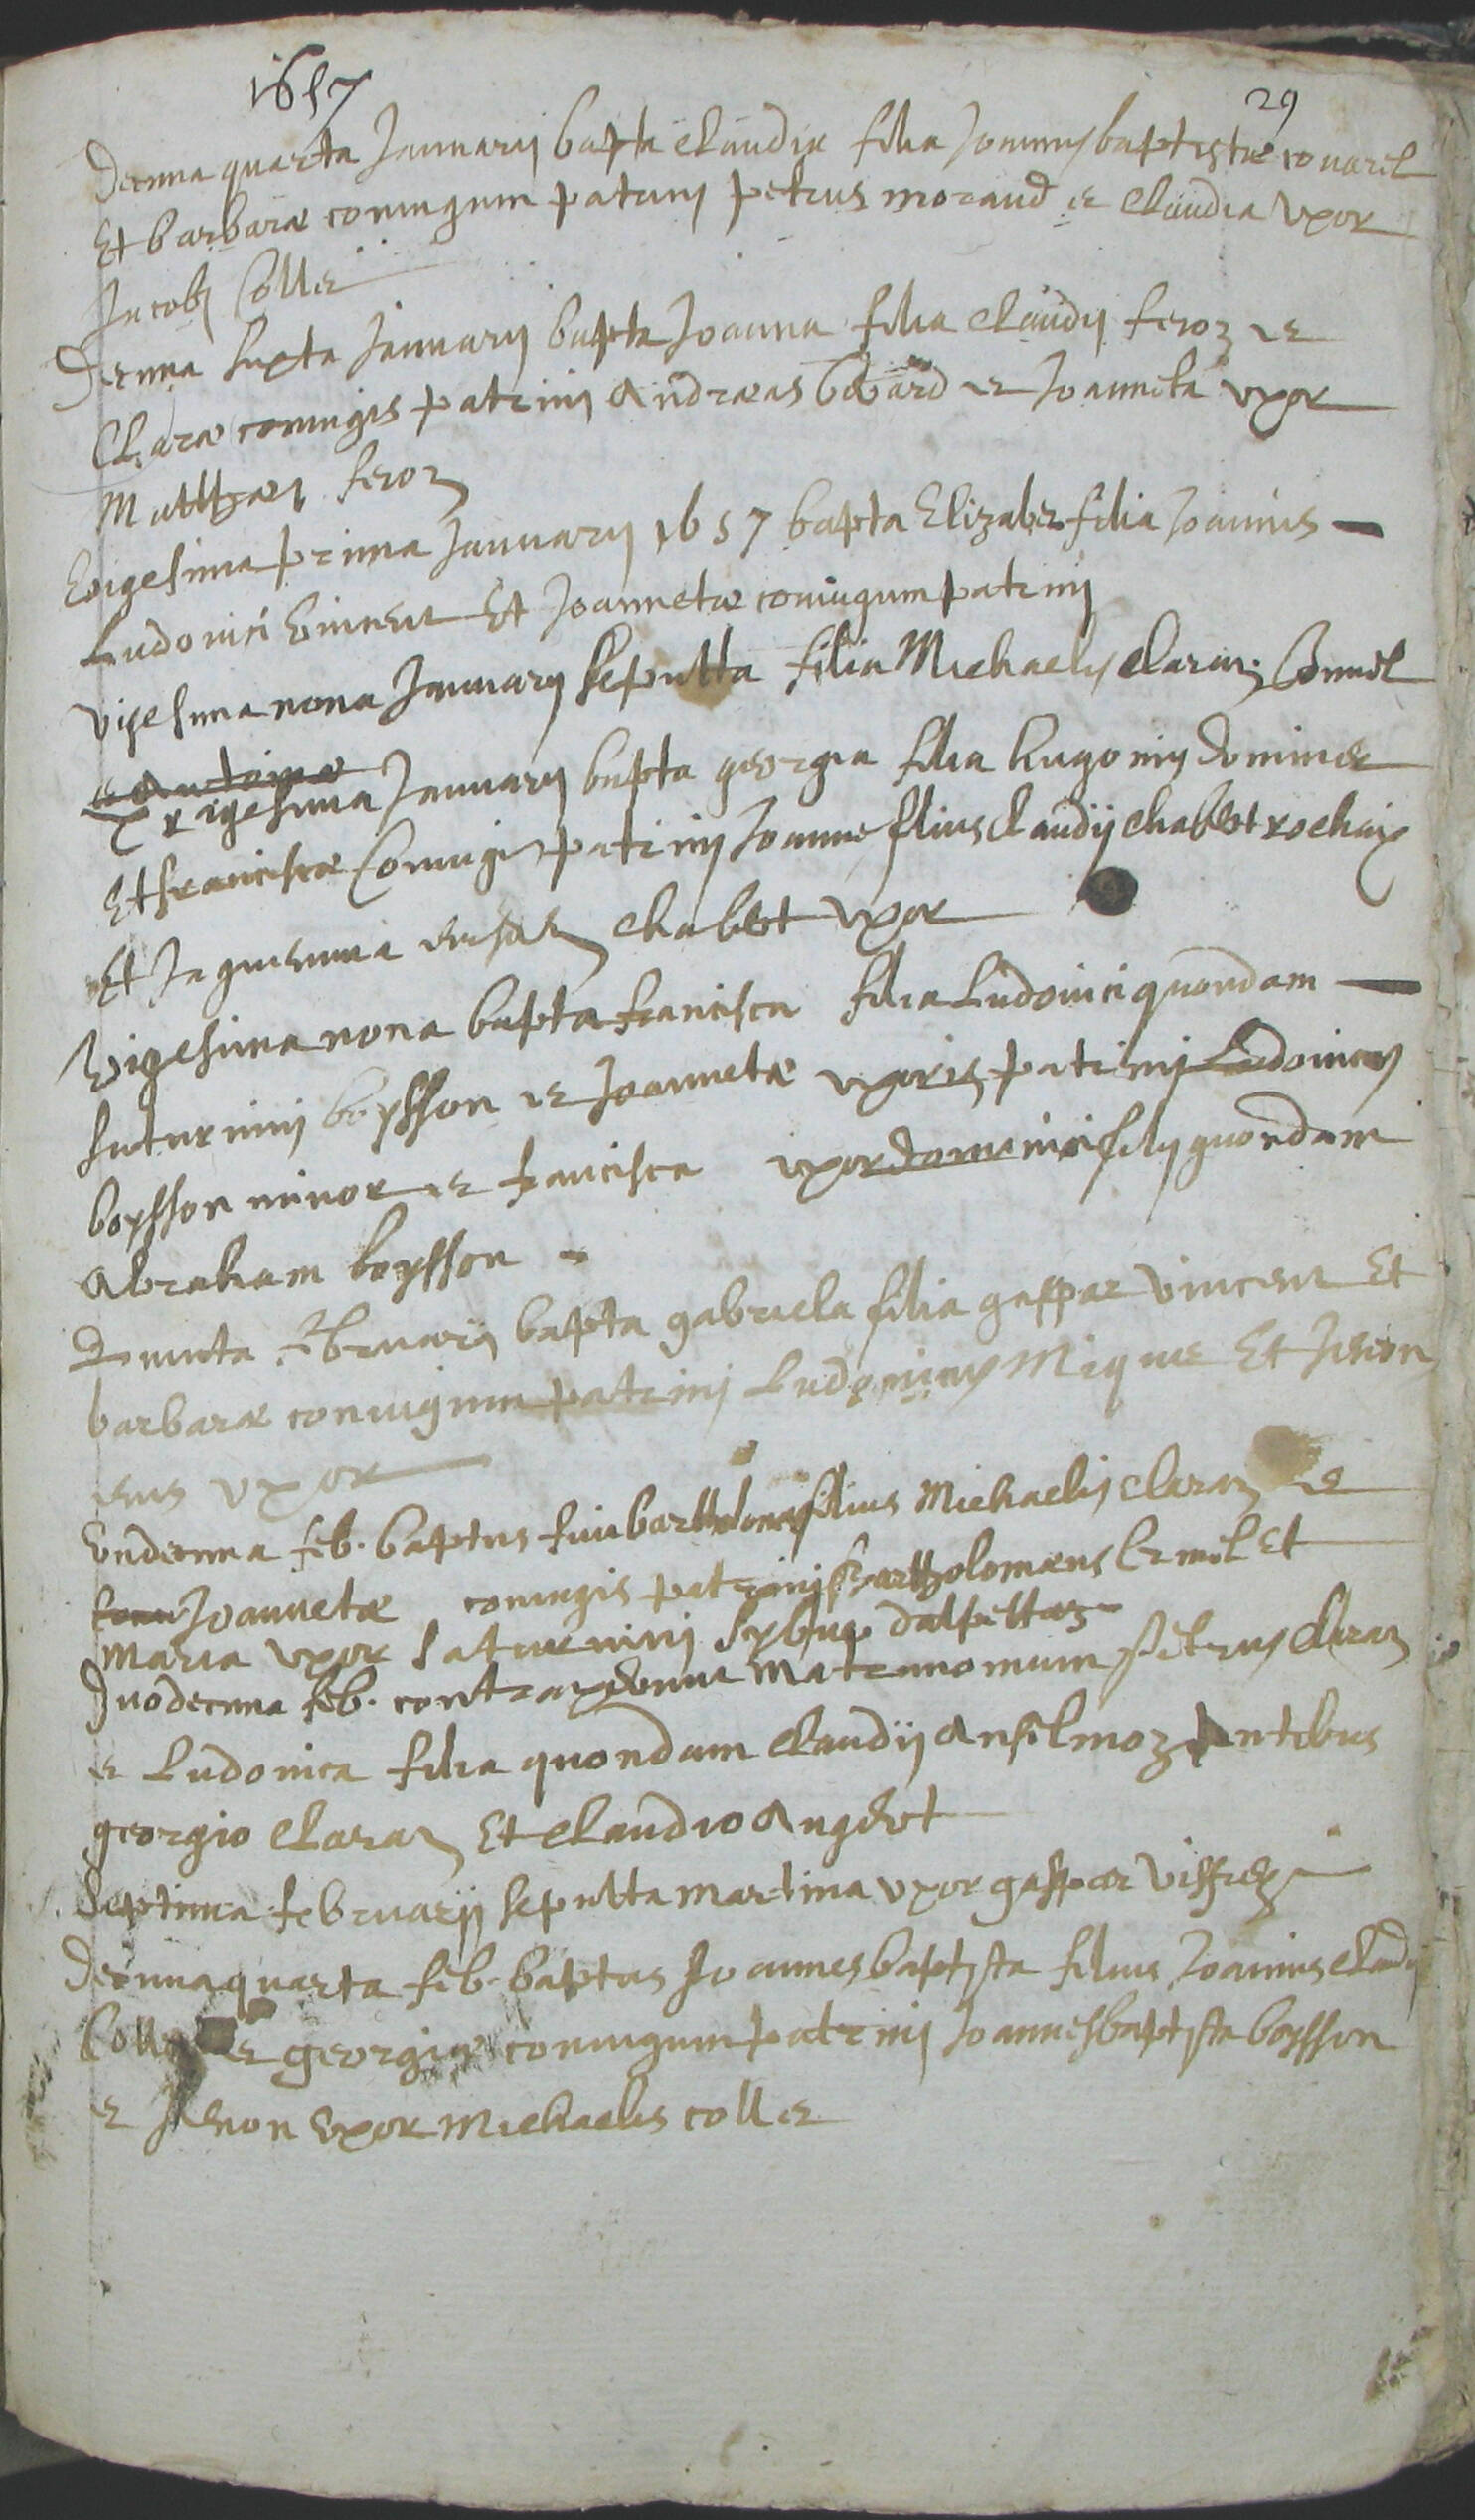 1657
29
Decima quarta Januarij bapta Claudia filia Joannis baptistæ covarel
Et barbaræ coniugum patrini petrus moraud et Claudia Vxor
Jacobi Collet
Decima sexta Januarij bapta Joanna filia Claudij feroz et
Claræ coniugis patrinij Andræas bward et Joanneta vxor
Matthæi feroz
Vigesima prima Januarij 1657 bapta Elizabet filia Joannis
Ludovici Vincent Et Joannetæ coniugum patrinij
Vigesima nona Januarij sepulta filia Michaelis Claraz
Trigesima Januarij bapta georgia filia hugonis dominet
Et franciscæ Coniugis patrinij Joannes filius Claudij chabert rochaix
Et Jaquemina chabert vxor
Vigesima nona bapta francisca filia Ludovici quondam
saturnini boysson et Joannetæ vxoris patrinij Ludovicus
boysson minor et francisca vxor dominici filij quondam
Abraham boysson
Quinta februarij bapta gabriela filia gaspar Vincent Et
barbaræ coniugum patrinij Ludovicus Mique Et Jenon
eius vxor
Undecima feb. baptus fuit bartholomæus filius Michaelis claraz et
Joannetæ coniugis patrinij bartholomæus Cr mel Et
Maria vxor Saturnini dalpettaz
Duodecima feb. contraxerunt matrimonium petrus claraz
et Ludovica filia quondam Claudij Anselmoz
georgio claraz Et Claudio Angelot
Septima februarij sepulta martina vxor gaspar
Decima quarta feb. baptus Joannes baptista filius Joannis Claudij
Collet et georgiæ coniugum patrinij Joannes baptista boysson
et Jenon vxor Michaelis collet